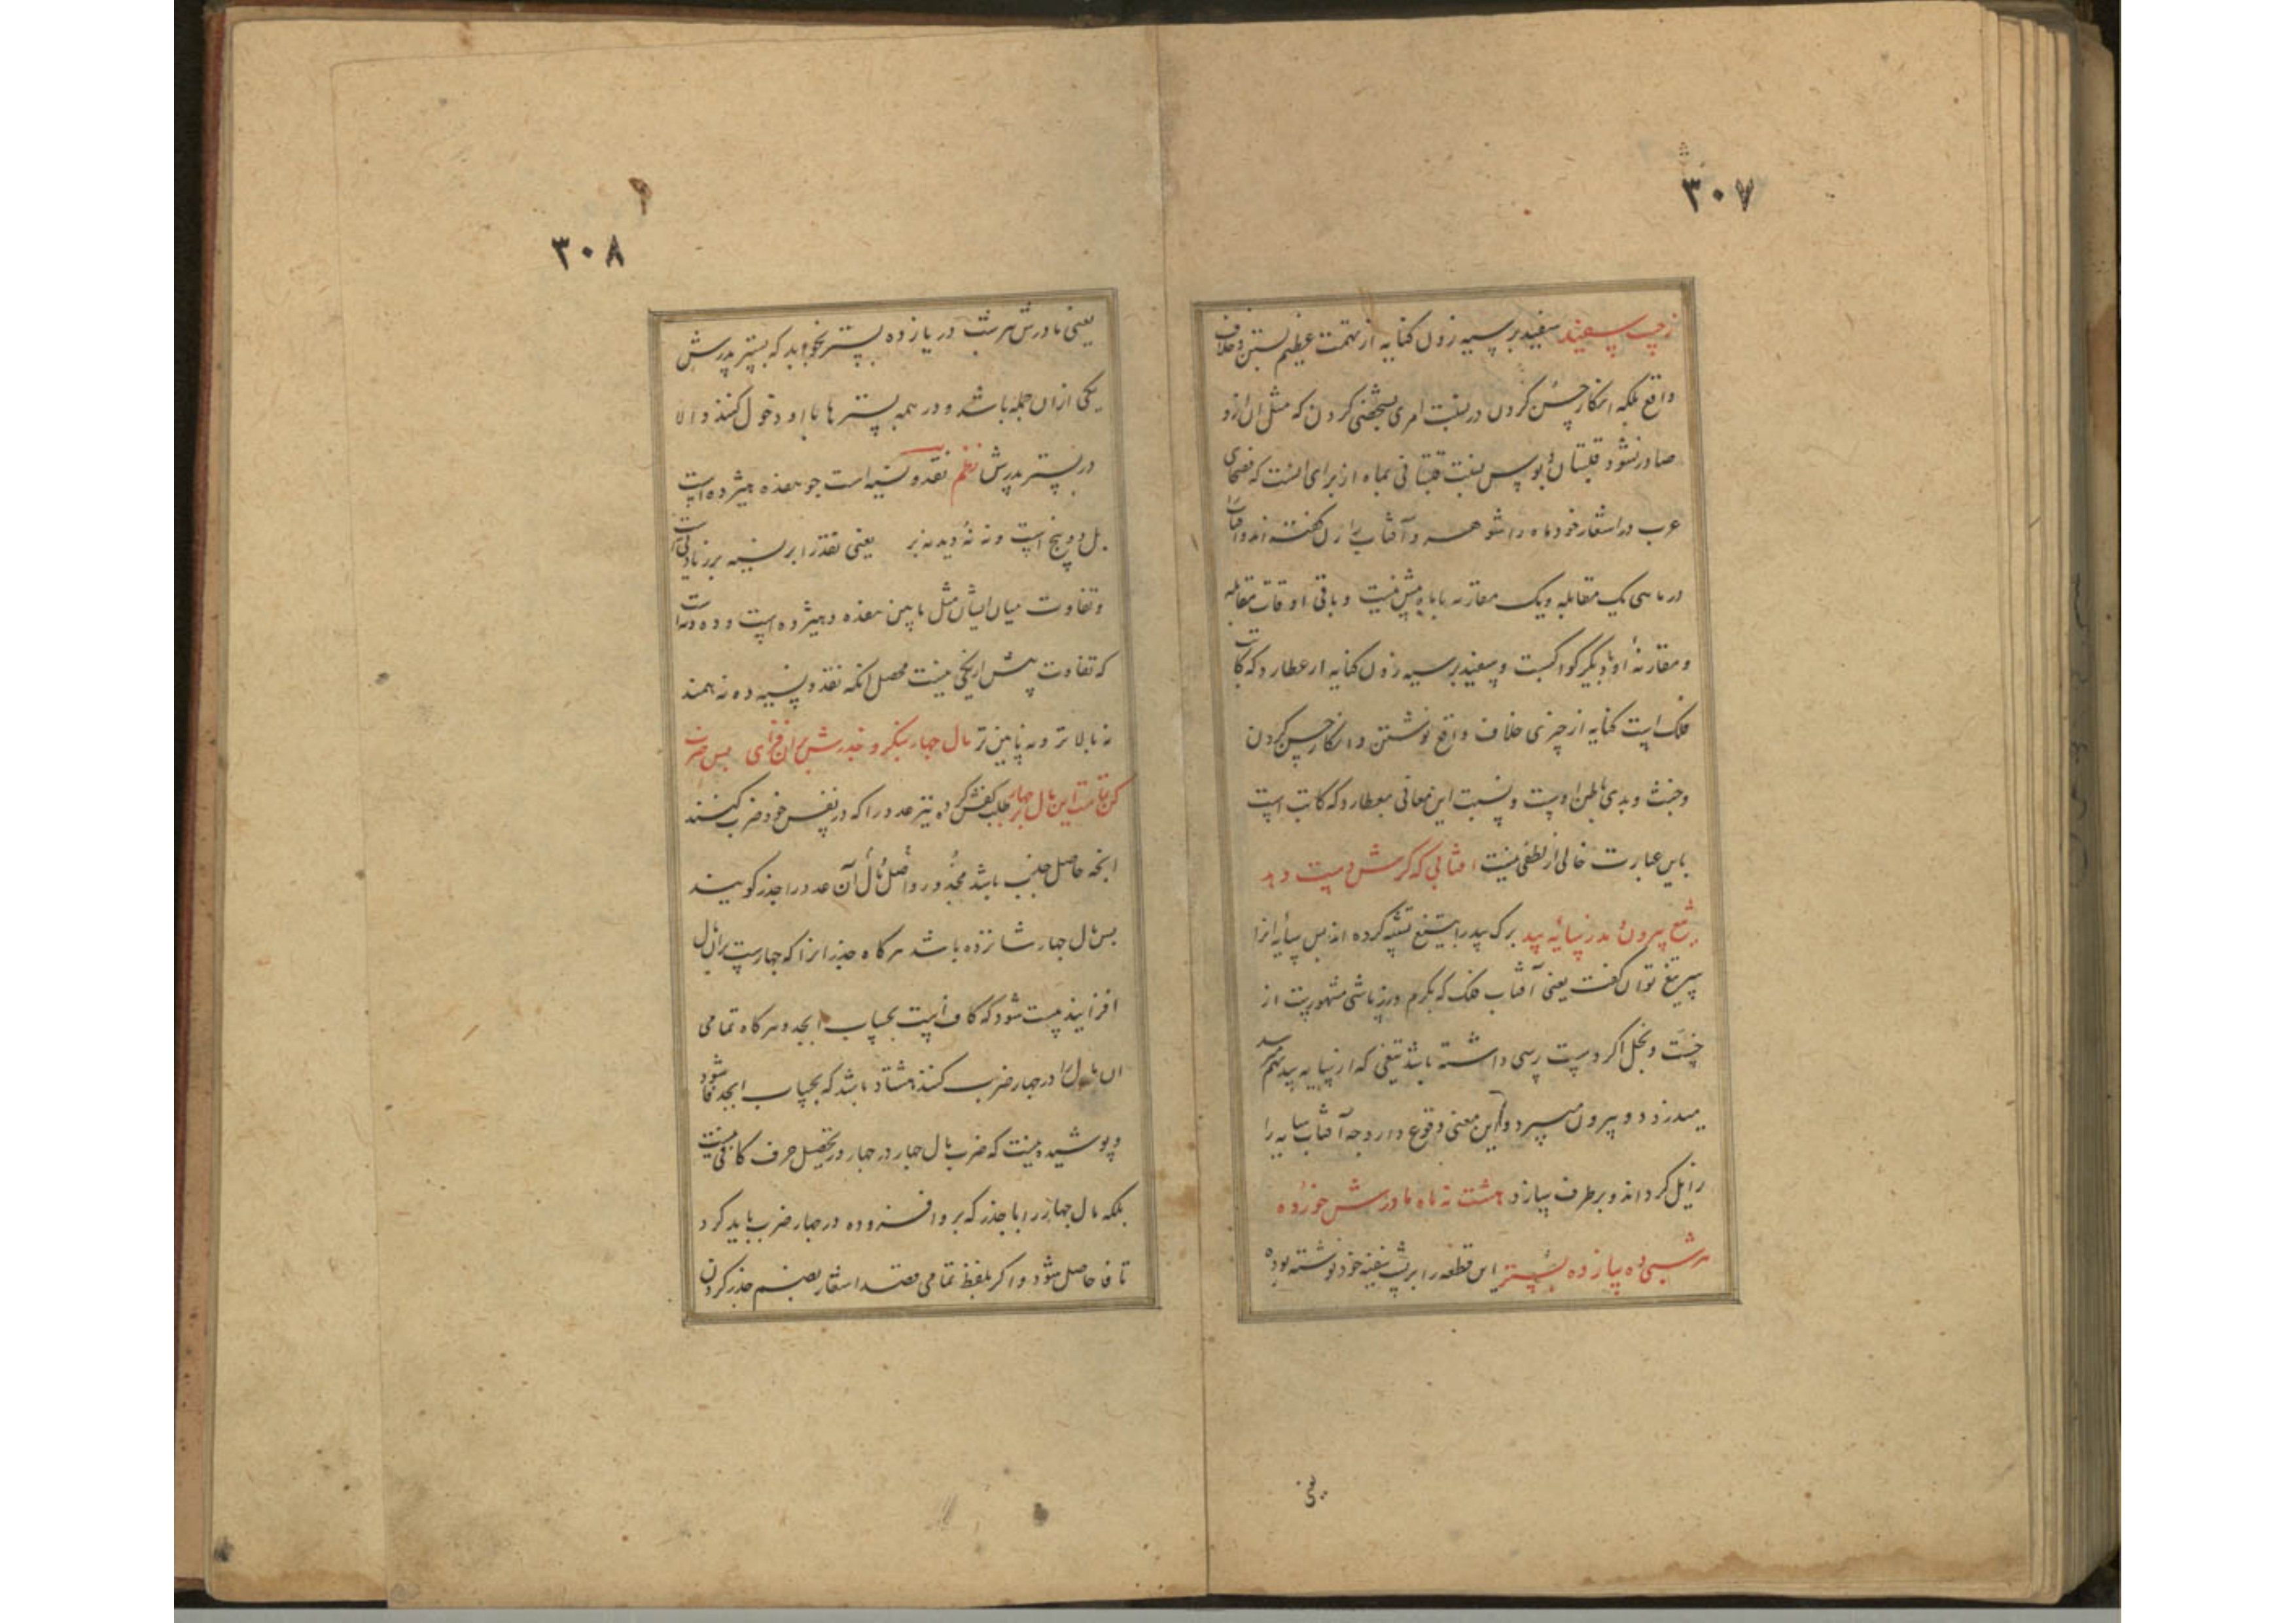 ۳۰۷
سفید بر سیه زدن کنایه از تهمت عظیم بستن و خلاف
واقع بلکه انکار حسن کردن در نسبت امری بشخصی کردن که مثل ان ازو
صادر نشود قلتبان بنسبت قلتبانی بماه از برای انست که فصحای
عرب در اشعار خود ماه را شوهر و آفتاب را زن گفته اند و آفتاب
در ماهی یک مقابله و یک مقارنه با ماه بیش نیست و باقی اوقات مقابله
و مقارنهٔ او با دیگر کواکبست و سفید بر سیه زدن کنایه از عطارد که کاتب
فلک است کنایه از چیزی خلاف واقع نوشتن و انکار حسن کردن
و خبث و بدی باطن اوست و نسبت این معانی بعطارد که کاتب است
باین عبارت خالی از لطفی نیست افتابی که کرمش دست دهد
تیغ بیرون برد ز سایهٔ بید برک بید را بتیغ تشبیه کرده اند پس سایه انرا
تیغ توان گفت یعنی آفتاب فلک که بکرم ورزی مشهورست از
خست و بخل اگر دست رسی داشته باشد تیغی که از سایه بید بهم رسد
میدزدد و بیرون میبرد و این معنی وقوع دارد چه آفتاب سایه را
زایل گرداند و برطرف سازد هشت نه ماه مادرش خورده
هر شبی ده بیازده بستر این قطعه را بر پشت سفینه خود نوشته بوده
یعنی
۳۰۸
یعنی مادرش هر شب در یازده بستر بخوابد که بستر پدرش
یکی از ان جمله باشد و در همه بسترها با او دخول کنند و الا
در بستر پدرش نظم نقد و نسیه است جو هفده هیژده است
بل دو پنج است و نه نه دید نه بر یعنی نقد را بر نسیه بر زیادتی است
و تفاوت میان ایشان مثل مابین هفده و هیژده است و ده و نه است
که تفاوت بیش از یکی نیست محصل انکه نقد و نسیه ده نه همند
نه بالاتر و نه پایین تر مال چهار بنگر و جذرش بران فزای پس ضرب
کن تمامت این مال بر چهار طلب کفش کرده نیز عدد را که در نفس خود ضرب کنند
انچه حاصل باشد مجذور و مال و آن عدد را جذر گویند
پس مال چهار شانزده باشد هرگاه جذر انرا که چهارست بران مال
افزایند بیست شود که کاف است بحساب ابجد و هرگاه تمامی
ان مال را در چهار ضرب کنند هشتاد باشد که بحساب ابجد فا شود
و پوشیده نیست که ضرب مال چهار در چهار در تحصیل حرف کافی نیست
بلکه مال چهار را با جذر که برو افزوده در چهار ضرب باید کرد
تا فا حاصل شود و اگر بلفظ تمامی قصد اشعار بضم جذر کردن